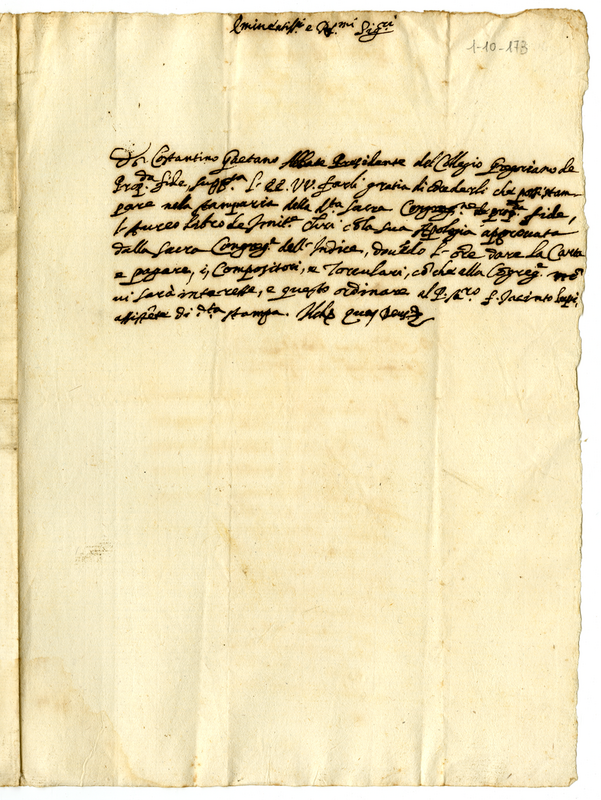 Eminentiss.mi e R.mi Sig.ri
1-10-173
D. Costantino Gaetano Abbate Presidente del Collegio Gregoriano de
Prop.da fide, supp.ca l'EE. VV. farli gratia di concederli che possi stam-
pare nela stamparia della d.ta Sacra Congreg.ne de prop.da fide,
l'Aureo Libro de Imit.e Chri cõ la sua Apologia approvata
dalla Sacra Congreg.e dell'Indice, l'Ore dare la Carta
e pagare, i, Compositori, e Torculari, cõ che ella Cõgreg.e nõ
vi sarà interesse, e questo ordinare al P. f. Jacinto
assistẽte di d.ta stampa.